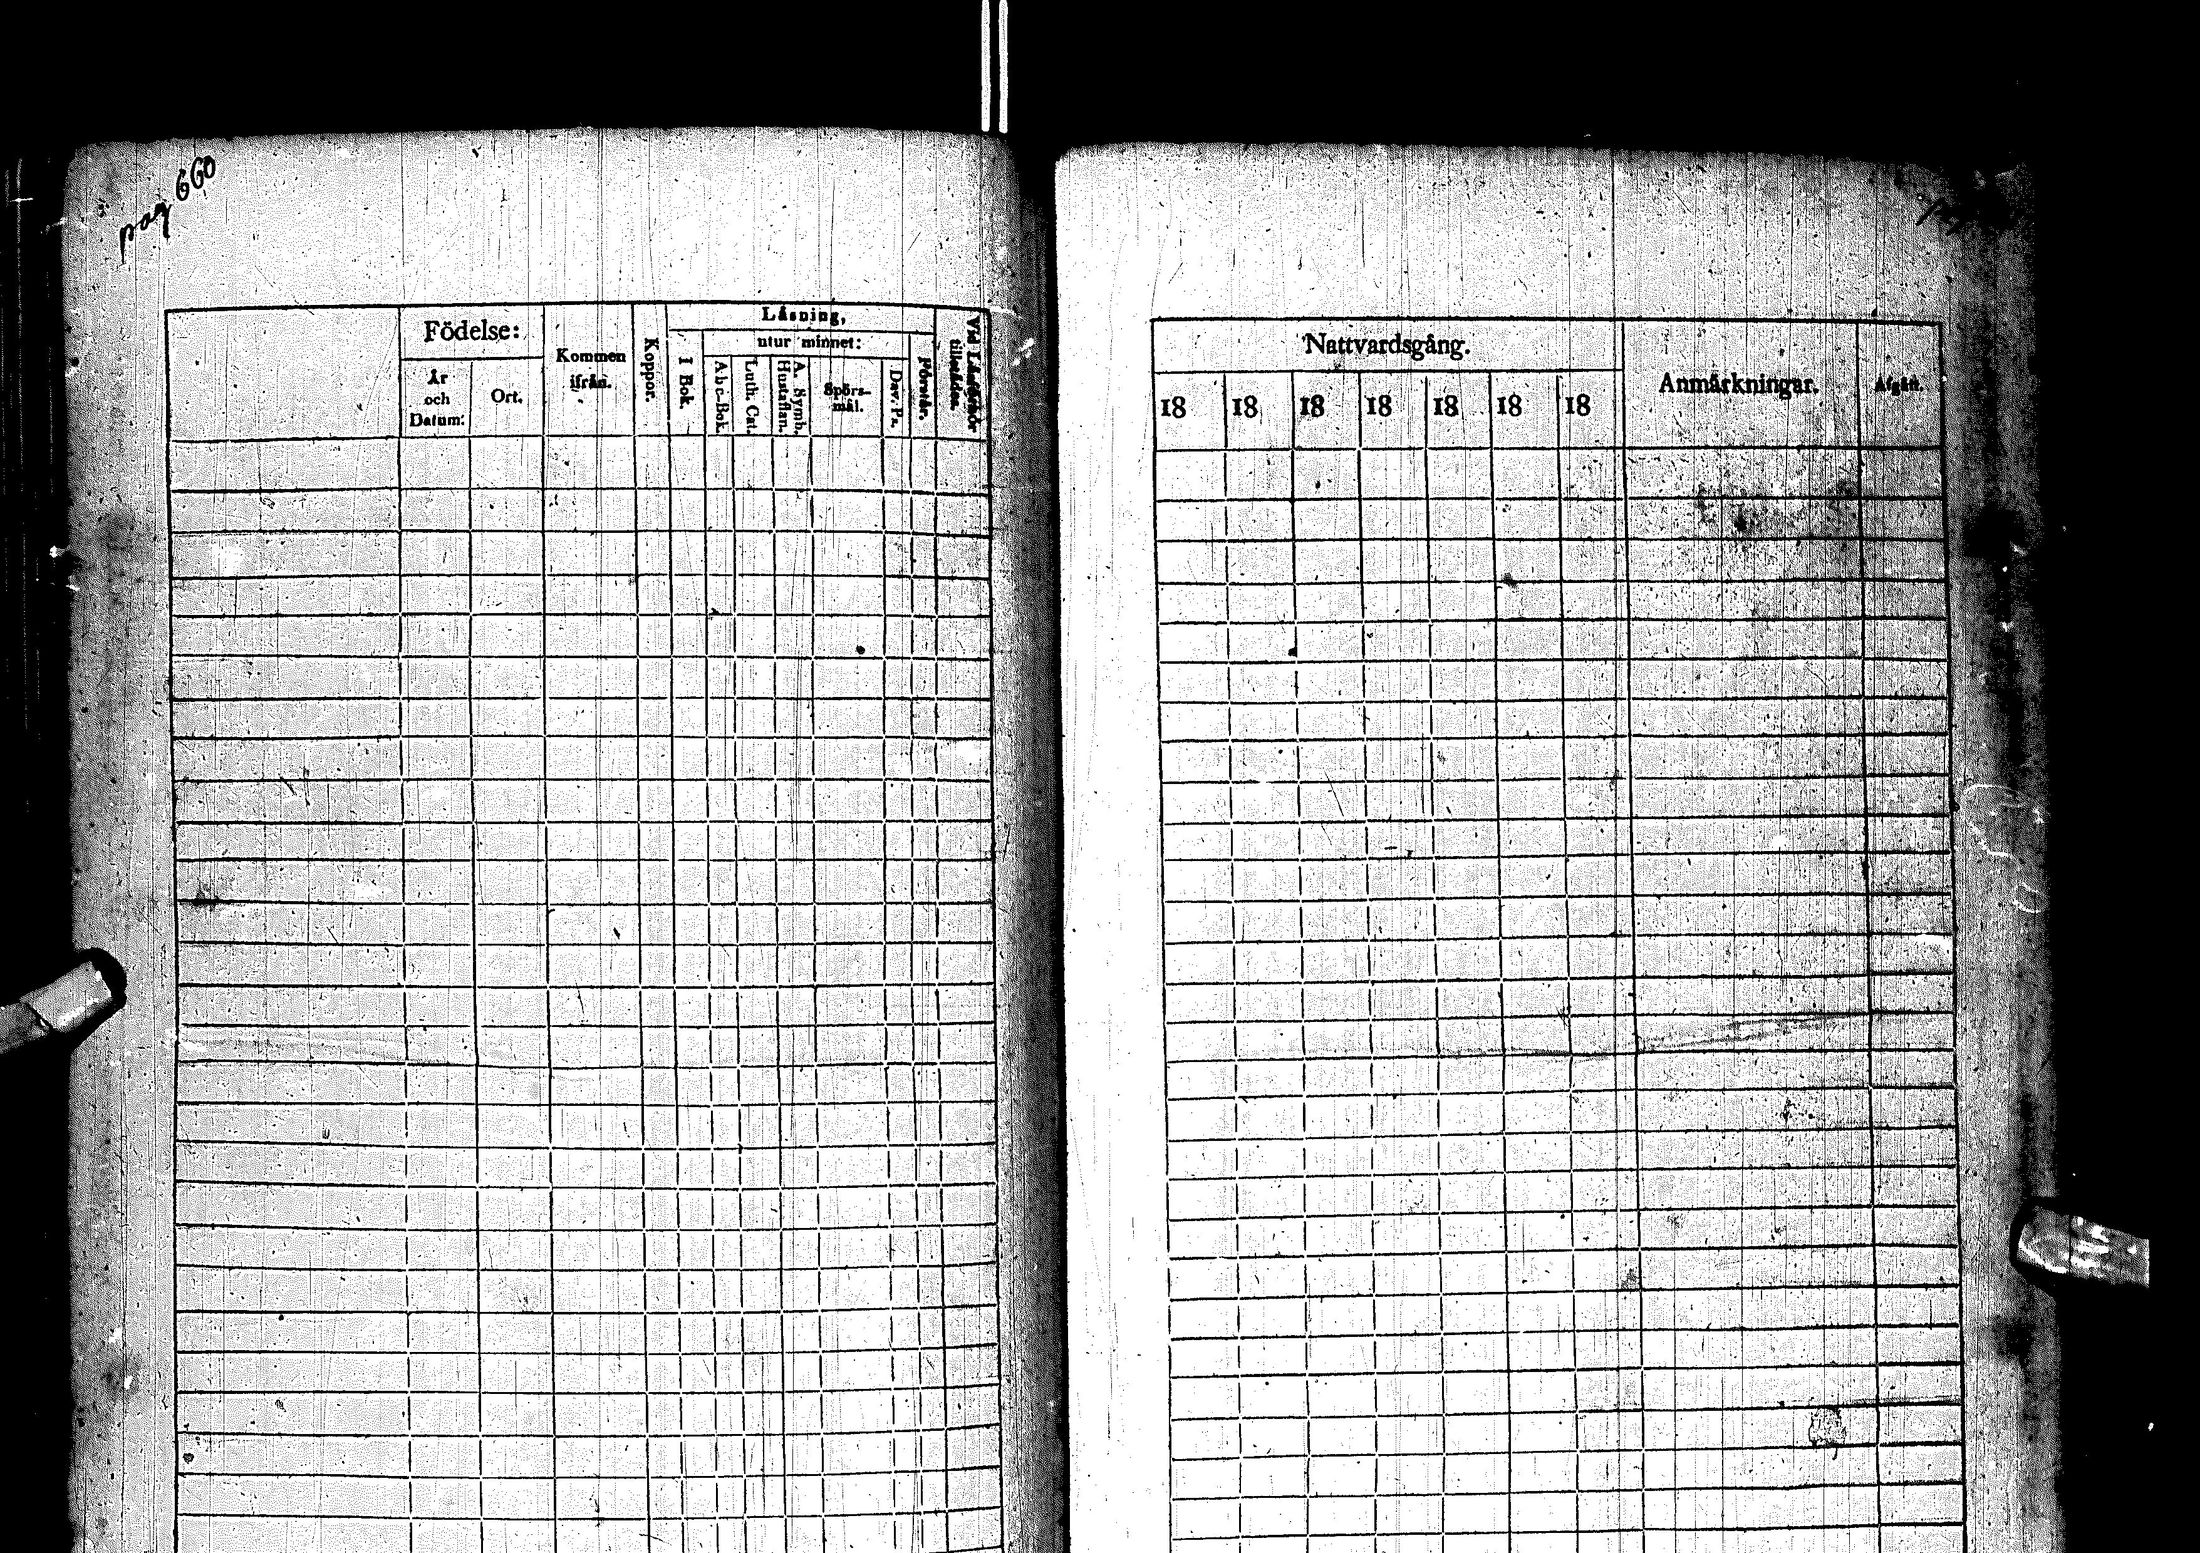 pag 660
Födelse:
År
och
Datum:
Ort.
Kommen
ifrån.
Koppor.
Läsning,
I Bok.
utur minnet:
Abc-Bok.
Luth. Cat.
A. Symb.
Hustaflan.
Spörs-
mål.
Dav. Ps.
Förstår.
Vid Läsförhör
tillstädes.
Nattvardsgång.
18 18 18 18 18 18 18
Anmärkningar.
Afgått.